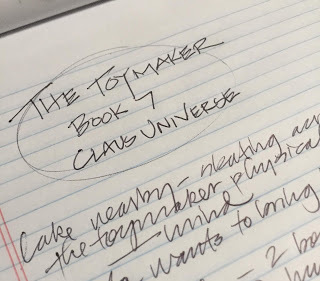 THE TOYMAKER
BOOK 7
CLAUS UNIVERSE
Lake nearby - skating
the toymaker physical
mind
wants to bring
- 2